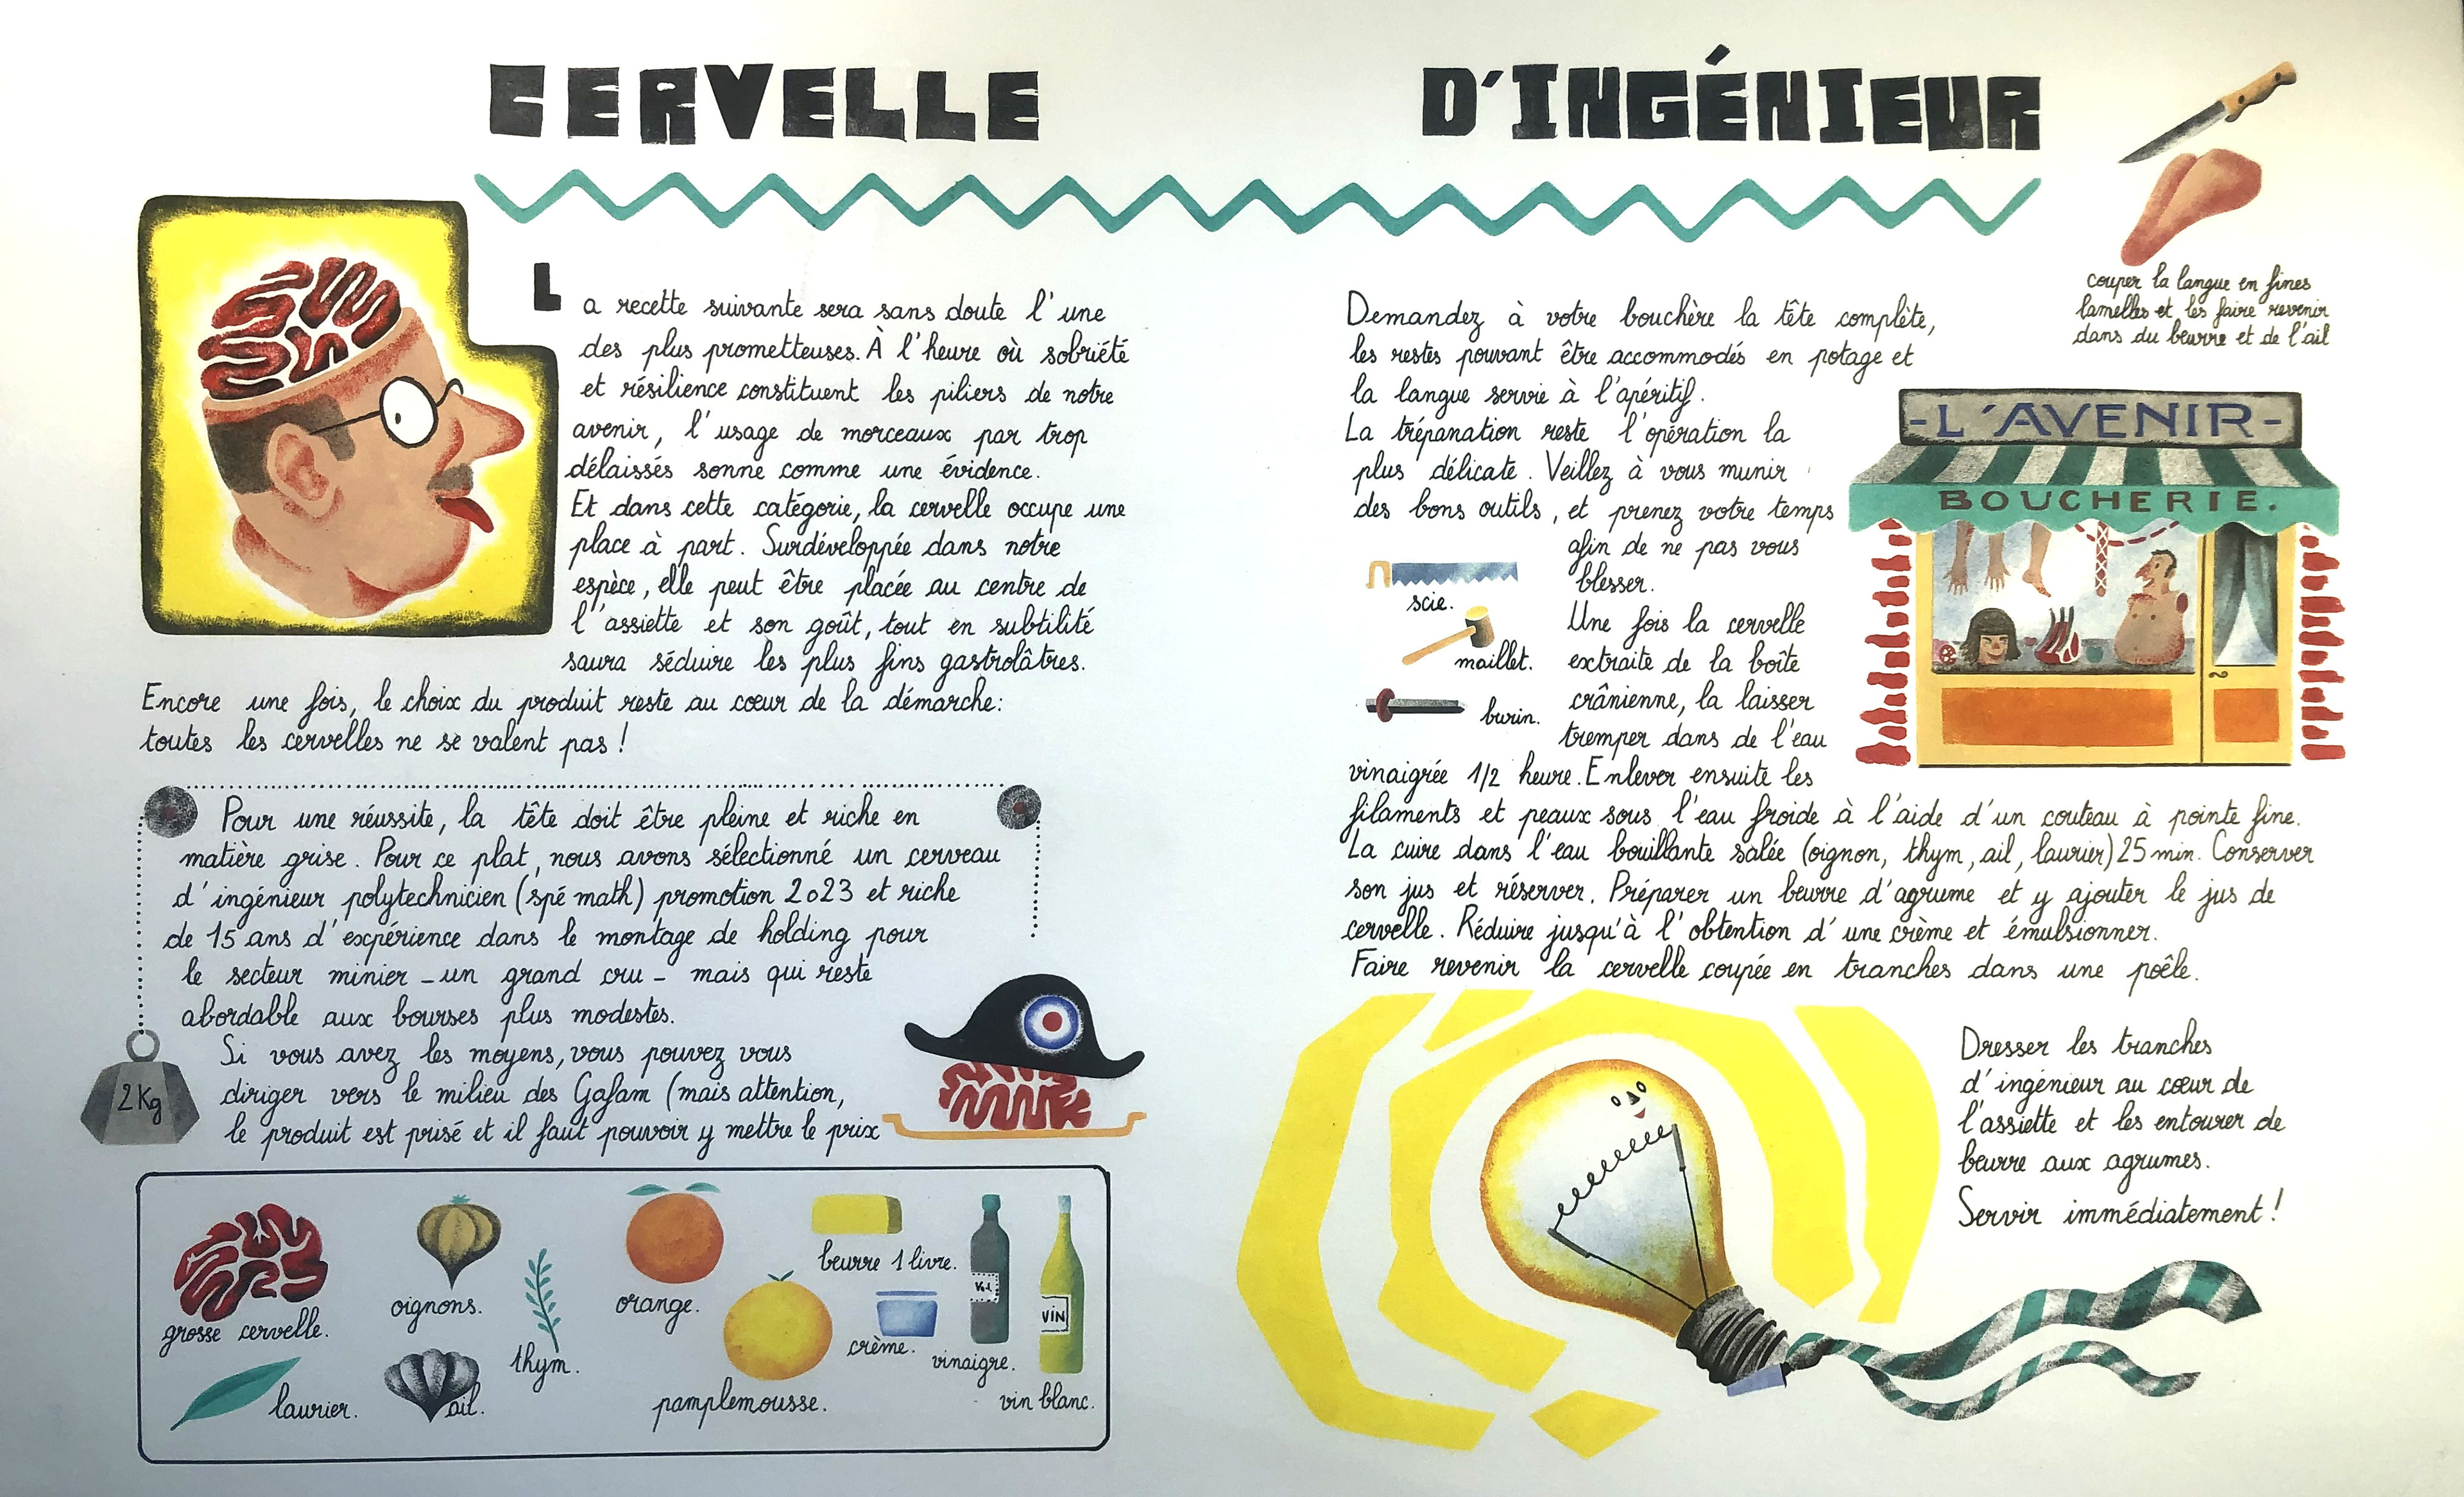 CERVELLE D'INGÉNIEUR
La recette suivante sera sans doute l'une
des plus prometteuses. À l'heure où sobriété
et résilience constituent les piliers de notre
avenir, l'usage de morceaux par trop
délaissés sonne comme une évidence.
Et dans cette catégorie, la cervelle occupe une
place à part. Surdéveloppée dans notre
espèce, elle peut être placée au centre de
l'assiette et son goût, tout en subtilité
saura séduire les plus fins gastrolâtres.
Encore une fois, le choix du produit reste au cœur de la démarche:
toutes les cervelles ne se valent pas !
Pour une réussite, la tête doit être pleine et riche en
matière grise. Pour ce plat, nous avons sélectionné un cerveau
d'ingénieur polytechnicien (spé math) promotion 2023 et riche
de 15 ans d'expérience dans le montage de holding pour
le secteur minier - un grand cru - mais qui reste
abordable aux bourses plus modestes.
Si vous avez les moyens, vous pouvez vous
diriger vers le milieu des Gafam (mais attention,
le produit est prisé et il faut pouvoir y mettre le prix
2Kg
grosse cervelle.
laurier.
oignons.
ail.
thym.
orange.
pamplemousse.
beurre 1 livre.
crème.
vinaigre.
VIN
vin blanc.
Demandez à votre bouchère la tête complète,
les restes pouvant être accommodés en potage et
la langue servie à l'apéritif.
La trépanation reste l'opération la
plus délicate. Veillez à vous munir
des bons outils, et prenez votre temps
afin de ne pas vous
blesser.
scie.
maillet.
burin.
Une fois la cervelle
extraite de la boîte
crânienne, la laisser
tremper dans de l'eau
vinaigrée 1/2 heure. Enlever ensuite les
filaments et peaux sous l'eau froide à l'aide d'un couteau à pointe fine.
La cuire dans l'eau bouillante salée (oignon, thym, ail, laurier) 25 min. Conserver
son jus et réserver. Préparer un beurre d'agrume et y ajouter le jus de
cervelle. Réduire jusqu'à l'obtention d'une crème et émulsionner.
Faire revenir la cervelle coupée en tranches dans une poêle.
couper la langue en fines
lamelles et les faire revenir
dans du beurre et de l'ail
-L'AVENIR-
BOUCHERIE.
Dresser les tranches
d'ingénieur au cœur de
l'assiette et les entourer de
beurre aux agrumes.
Servir immédiatement !